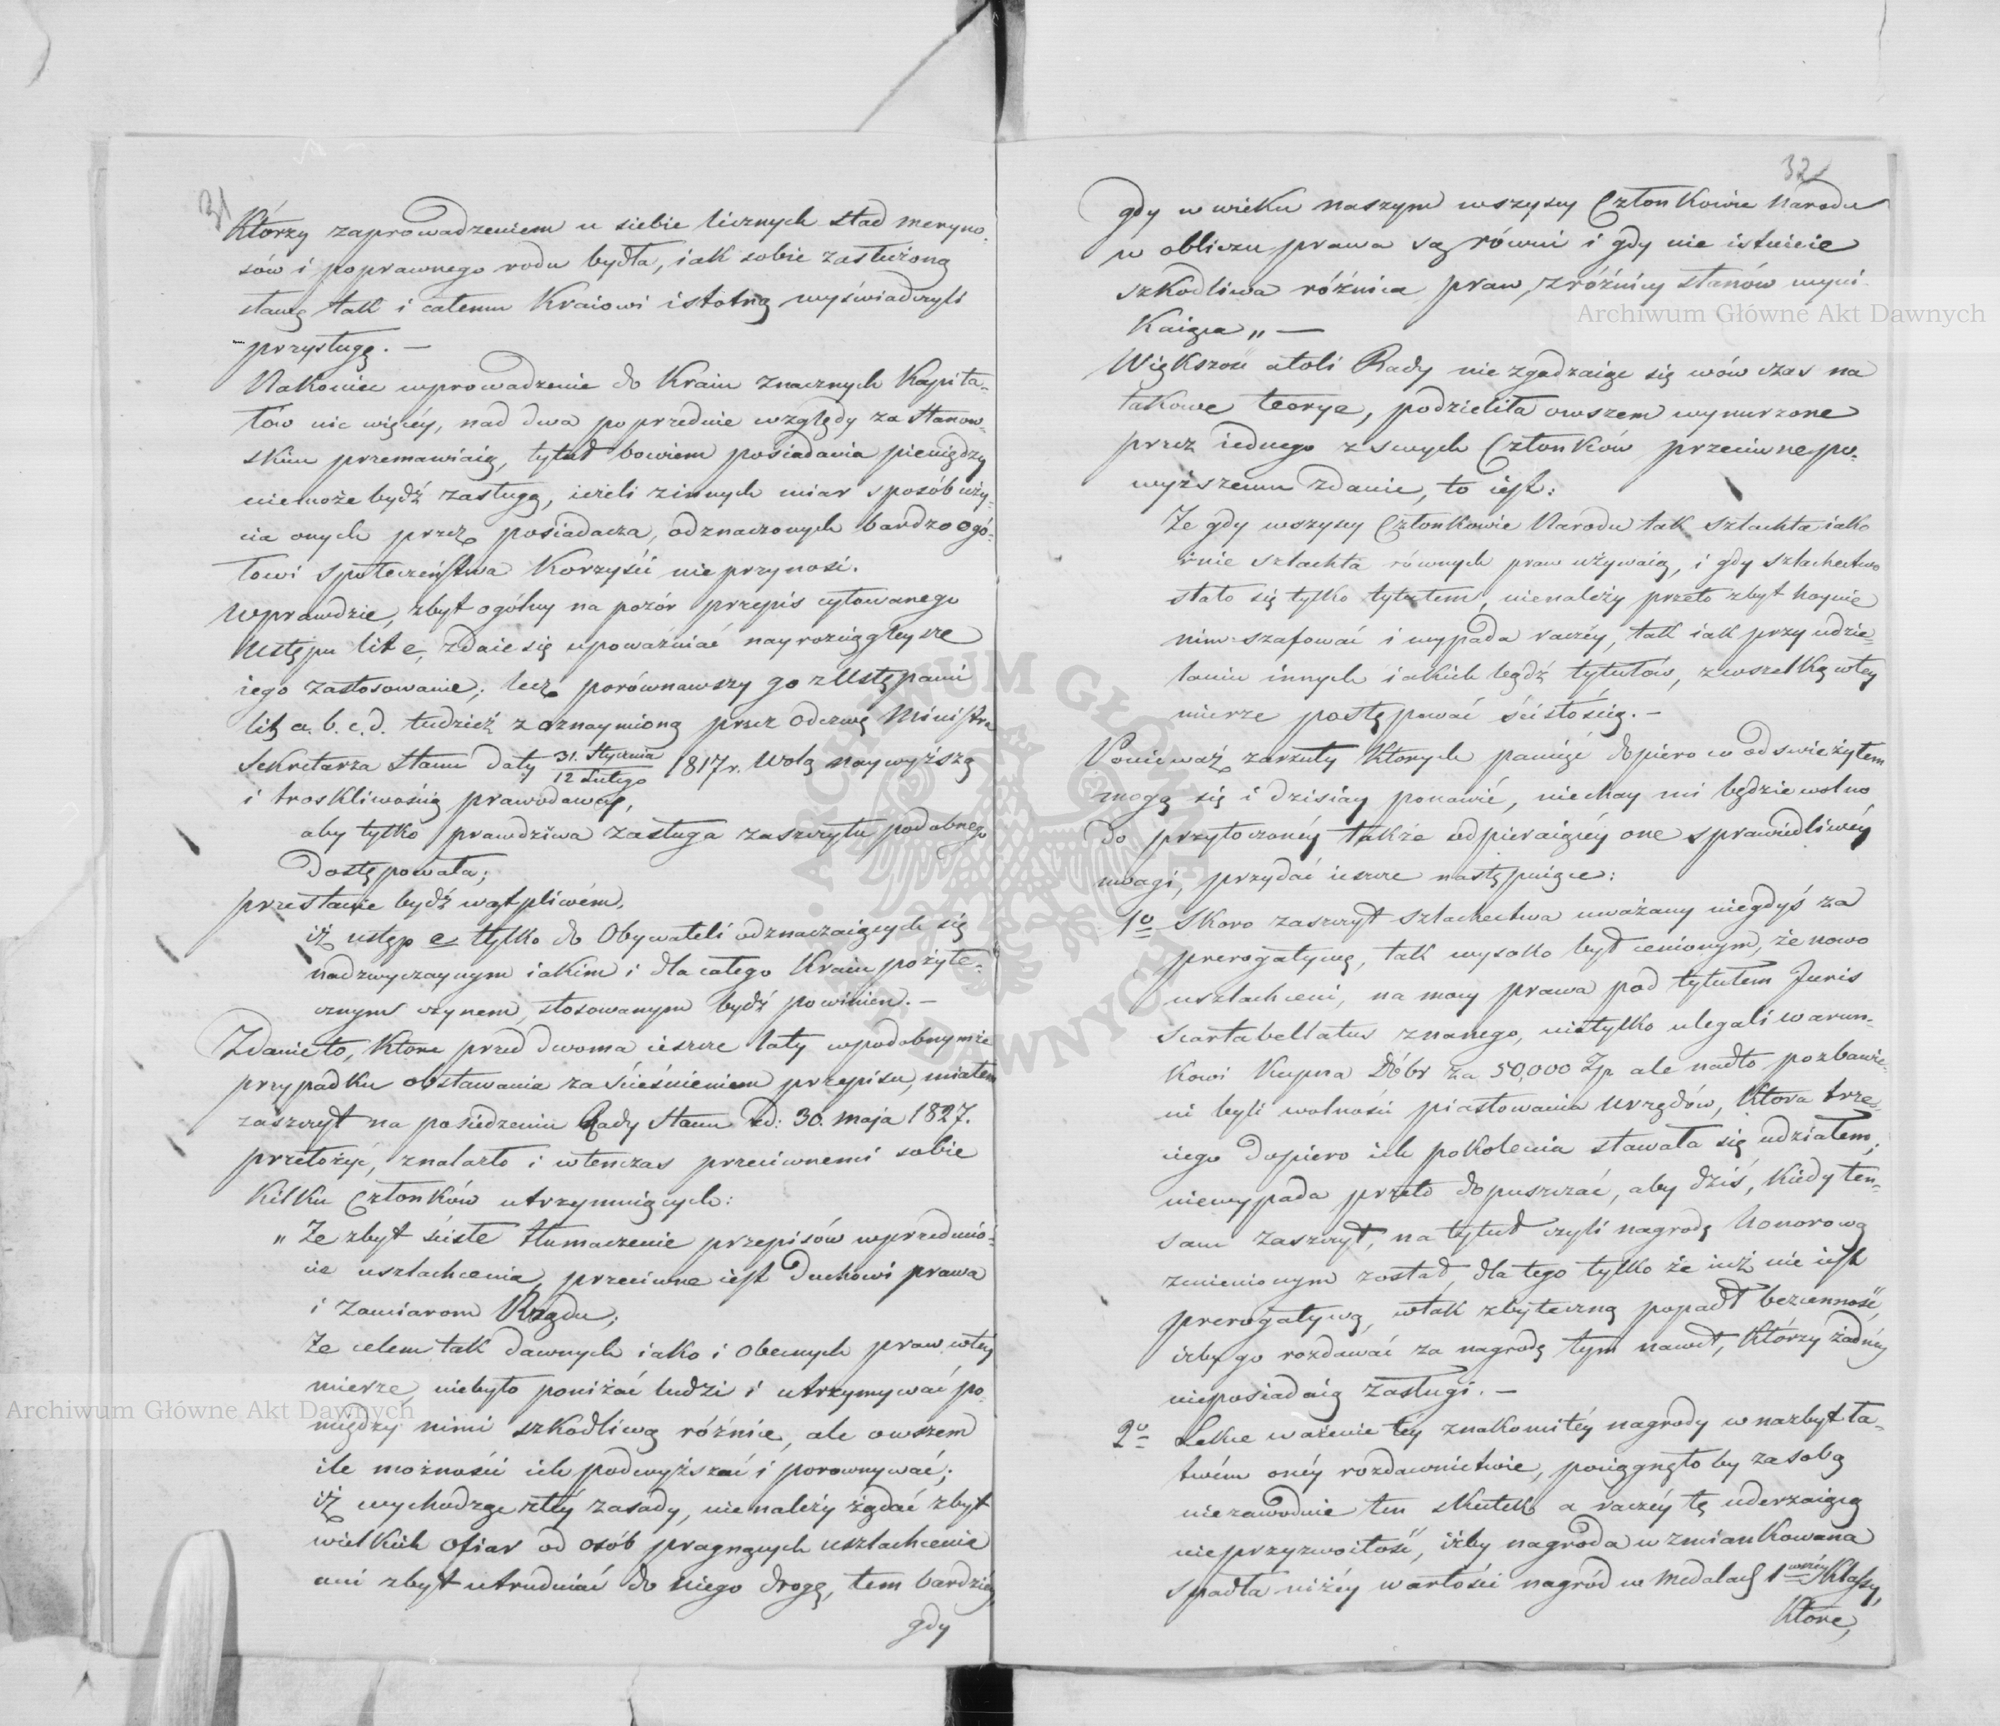 31
Którzy zaprowadzeniem u siebie licznych stad meryno-
sów i poprawnego rodu bydła, iak sobie zasłużoną
sławę tak i całemu Kraiowi istotną wyświadczyli
przysługę. —
Nakoniec wprowadzenie do Kraiu znacznych Kapita-
łów nic więcéy, nad dwa poprzednie względy za Stanow-
skim przemawiaią, tytuł bowiem posiadania pieniędzy
niemoże bydź zasługą, ieżeli zinnych miar sposób uży-
cia onych przez posiadacza, odznaczonych bardzo ogó-
łowi społeczeństwa Korzyści nie przynosi.
Wprawdzie, zbyt ogólny na pozór przepis cytowanego
Ustępu lit e, zdaie się upoważniać nayrozciągleysze
iego zastosowanie; lecz porównawszy go z Ustępami
lit a. b. c. d. tudzież z oznaymioną przez Odezwę Ministra
Sekretarza Stanu daty 31. Stycznia / 12 Lutego 1817 r. Wolą naywyższą
i troskliwością prawodawcy,
aby tylko prawdziwa zasługa zaszczytu podobnego
dostępowała;
przestanie bydź wątpliwém,
iż ustęp e tylko do Obywateli odznaczaiących się
nadzwyczaynym iakim i dla całego Kraiu pożyte-
cznym czynem, stosowanym bydź powinien. —
Zdanie to, które przed dwoma ieszcze laty wpodobnymże
przypadku obstawania za ścieśnieniem przepisu, miałem
zaszczyt na posiedzeniu Rady Stanu d: 30. Maja 1827.
przełożyć, znalazło i wtenczas przeciwnemi sobie
Kilku Członków utrzymuiących:
„ Że zbyt ściste tłumaczenie przepisów wprzedmio-
cie uszlachcenia, przeciwne iest duchowi prawa
i zamiarom Rządu;
Że celem tak dawnych iako i obecnych praw wtéy
mierze, niebyło poniżać ludzi i utrzymywać po-
między nimi szkodliwą różnicę, ale owszem
ile możności ich podwyższać i porownywać;
iż wychodząc ztéy zasady, nie należy żądać zbyt
wielkich ofiar od osób pragnących uszlachcenia
ani zbyt utrudniać do niego drogę, tem bardziéy,
gdy
32
gdy w wieku naszym wszyscy Członkowie Narodu
w obliczu prawa są równi i gdy nie istnieie
szkodliwa różnica praw, z różnicy stanów wyni-
kaiąca „ —
Większość atoli Rady nie zgadzaiąc się wówczas na
takowe teorye, podzieliła owszem wynurzone
przez iednego z swych Członków przeciwne po-
wyższemu zdanie, to iest:
Że gdy wszyscy Członkowie Narodu tak szlachta iako
i nie szlachta równych praw używaią, i gdy szlachectwo
stało się tylko tytułem, nienależy przeto zbyt hoynie
nim szafować i wypada raczéy, tak iak przy udzie-
laniu innych iakich bądź tytułów, z wszelką wtey
mierze postępować ścisłością. —
Ponieważ zarzuty których pamięć dopiero co odswieżyłem
mogą się i dzisiay ponowić, niechay mi będzie wolno
do przytoczonéy także odpieraiącéy one sprawiedliwéy
uwagi, przydać ieszcze następuiące:
1o Skoro zaszczyt szlachectwa uważany niegdyś za
prerogatywę, tak wysoko był cenionym, że nowo
uszlachceni, na mocy prawa pod tytułem Juris
scartabellatus znanego, nietylko ulegali warun-
kowi Kupna Dóbr za 50,000 Zp. ale nadto pozbawie-
ni byli wolności piastowania Urzędów, Która trze-
ciego dopiero ich pokolenia stawała się udziałem;
niewypada przeto dopuszczać, aby dziś, kiedy ten-
sam zaszczyt, na tytuł czyli nagrodę honorową
zmienionym został, dla tego tylko że iuż nie iest
prerogatywą, wtak zbyteczną popadł bezcenność,
iżby go rozdawać za nagrodę tym nawet, Którzy żadnéy
nieposiadaią zasługi. —
2o Lekce ważenie téy znakomitéy nagrody w nazbyt ła-
twém onéy rozdawnictwie, pociągnęłoby za sobą
niezawodnie ten skutek a raczéy tę uderzaiącą
nieprzyzwoitość, iżby nagroda wzmiankowana
spadła niżéy wartości nagród w Medalach 1wszéy Klassy,
Które,
Archiwum Główne Akt Dawnych
Archiwum Główne Akt Dawnych
ARCHIWUM GŁÓWNE AKT DAWNYCH